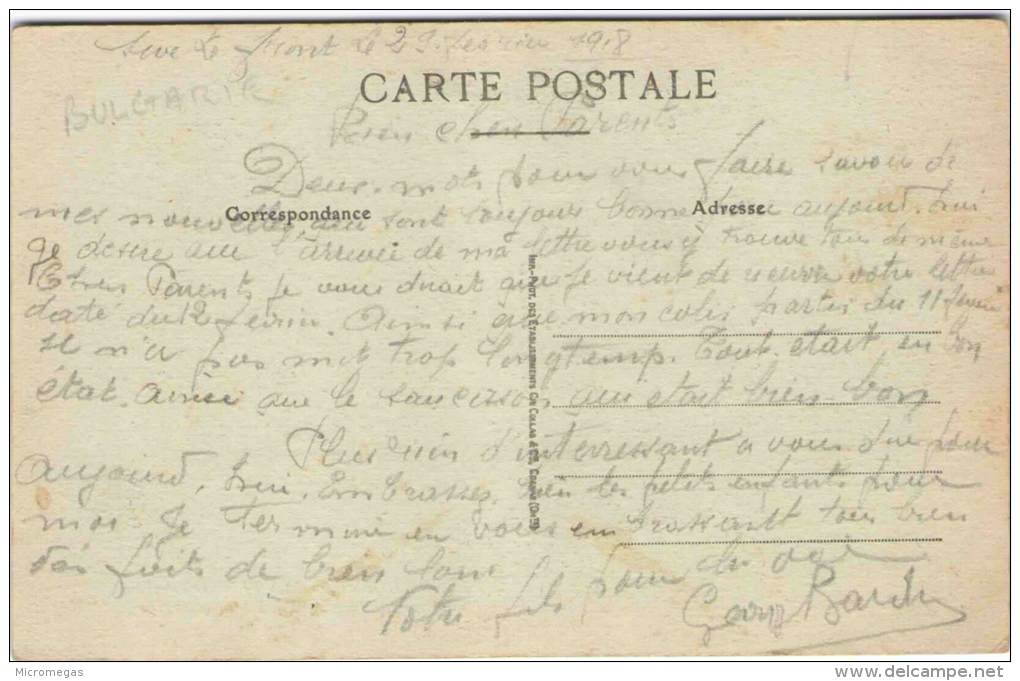 Sur Le front le 23 fevrier 1918
CARTE POSTALE
BULGARIE
Bien cher Parents
Deux mots pour vous faire savoir de
mes nouvelles qui sont toujours bonne aujourd. hui
Correspondance
Adresse
je desire que l'arrivée de ma lettre vous y trouve tous de même
Chers Parents je vous dirait que je vient de votre lettre
daté du 12 fevrier. Ainsi que mon colis partis du 11 fevrier
se n'a pas mit trop longtemp. Tout était en bon
état. ainsi que le saucisson qui était bien bon
Plus rien d'interressant a vous dire pour
aujourd. hui. Embrassez bien les petits enfants pour
moi. Je Termine en vous embrassant tous bien
des foits de bien loin
Votre fils pour la vie
IMP.-PHOT. DES ÉTABLISSEMENTS CH. COLLAS & Cie, COGNAC
Micromegas
delcampe.net